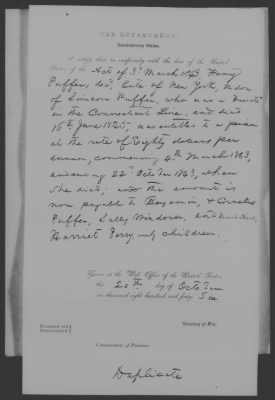 WAR DEPARTMENT.
Revolutionary Claim.
I certify that in conformity with the law of the United
States of the Act of 3d March 1843 Fanny
Puffer, decd. late of New York, widow
of Simeon Puffer, who was a
in the Connecticut Line, and died
16th June 1825; was entitled to a pension
at the rate of Eighty dollars per
annum, commencing 4th March 1843,
and ending 22d October 1843, when
she died; and the amount is
now payable to Benjamin, &
Puffer, Sally Windover, and
Harriet Perry, only children.
Given at the War Office of the United States,
this day of October
one thousand eight hundred and forty
Secretary of War.
Examined and
Countersigned
Commissioner of Pensions.
Duplicate